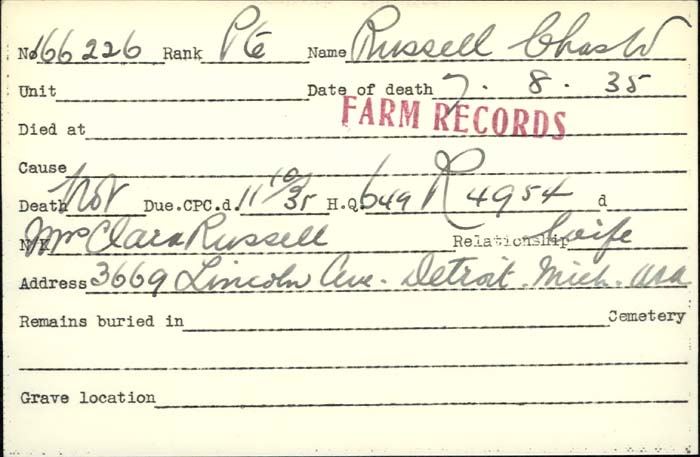 No 166226 Rank Pte Name Russell Chas W
Unit Date of death 7. 8. 35
FARM RECORDS
Died at
Cause
Death Not Due.CPC.d. 11 10/35 H.Q. 649 R 4954 d
N/K Mrs Clara Russell Relationship Wife
Address 3669 Lincoln Ave. Detroit. Mich. USA
Remains buried in Cemetery
Grave location